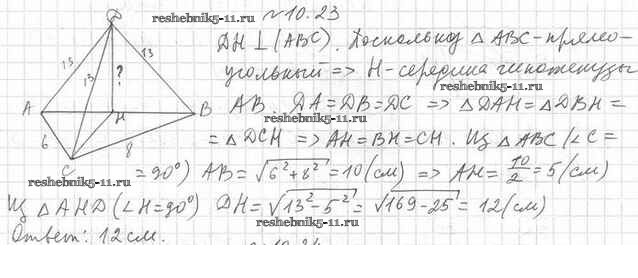 reshebnik5-11.ru
№10.23
DH ⊥ (ABC). Поскольку △ ABC - прямо-
угольный => H - середина гипотенузы
AB. DA = DB = DC => △DAH = △DBH =
= △DCH => AH = BH = CH. Из △ABC (∠C =
reshebnik5-11.ru
= 90°) AB = √(6² + 8²) = 10 (см) => AH = 10/2 = 5 (см)
reshebnik5-11.ru
Из △AHD (∠H = 90°) DH = √(13² - 5²) = √(169 - 25) = 12 (см)
reshebnik5-11.ru
Ответ: 12 см.
D
13
13
13
?
A
H
B
6
8
C